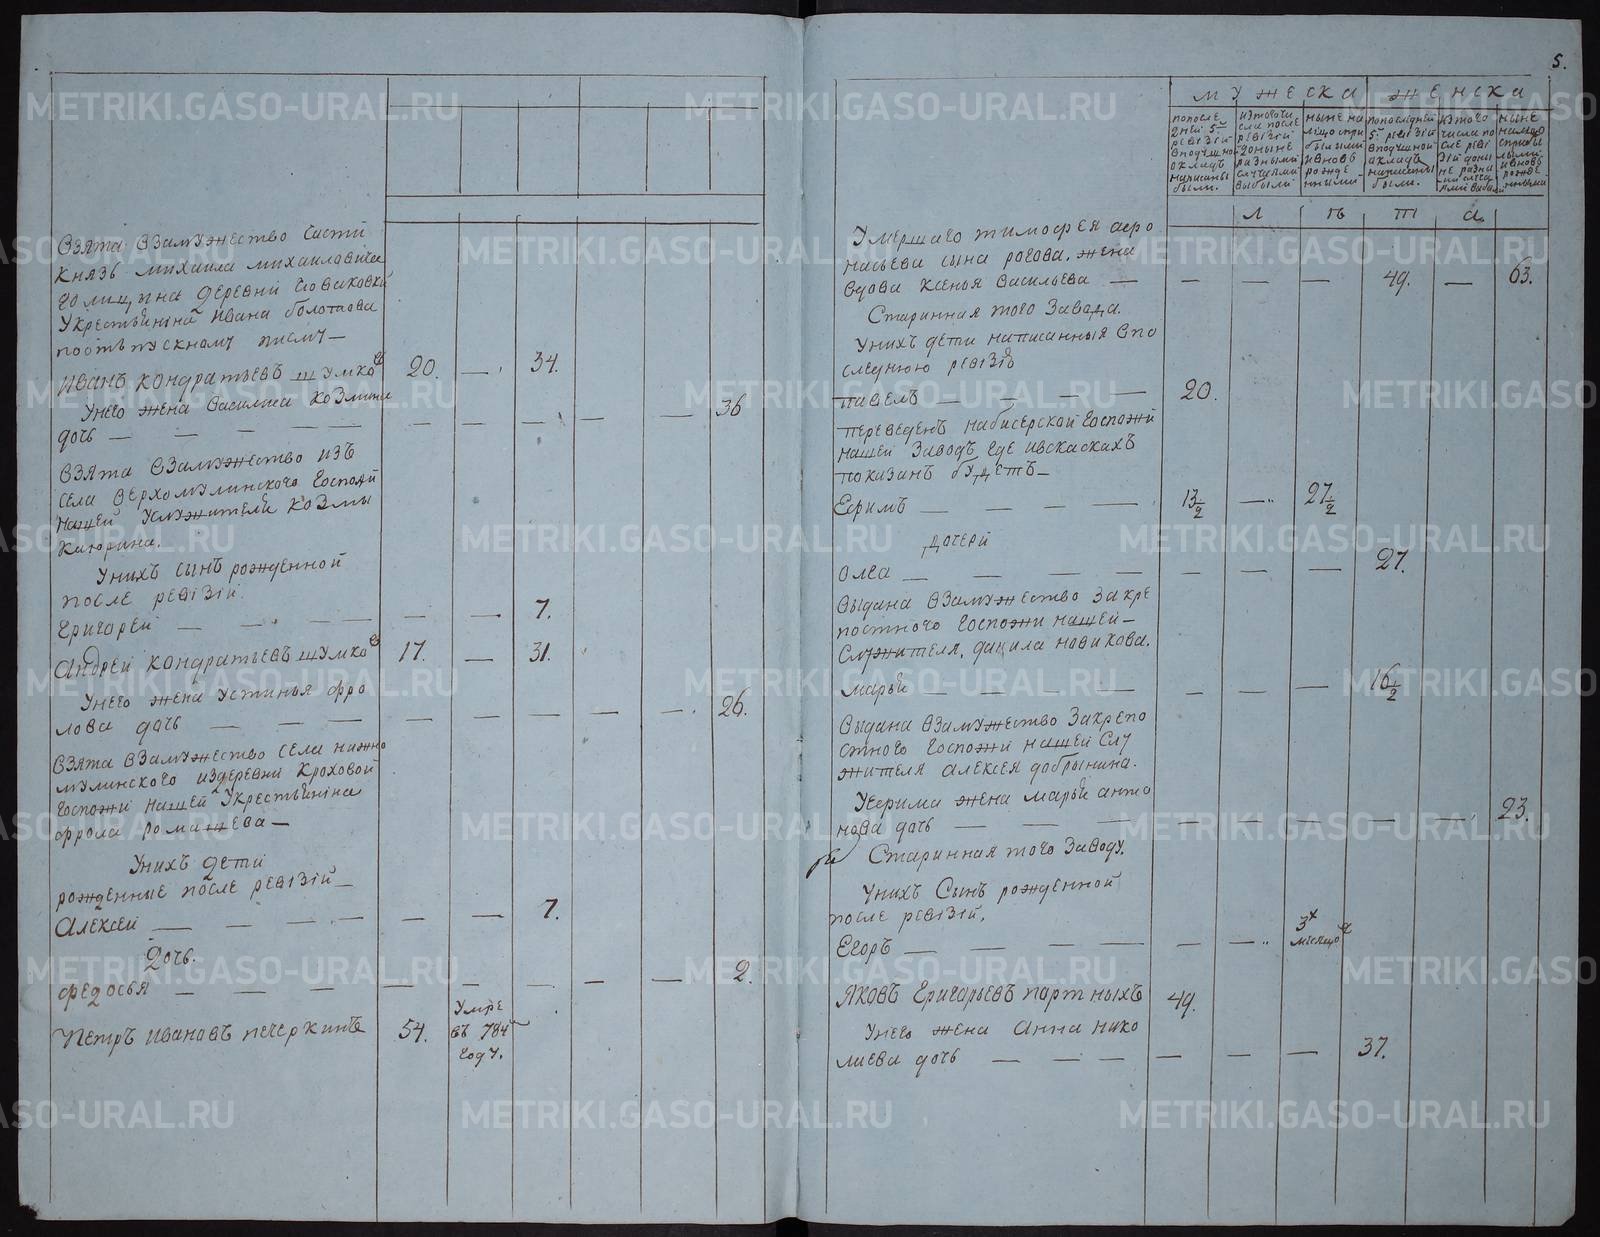 взята взамужество части
князь михаила михаилавича
голицына деревни саваковки
укрестьянина ивана болотова
поотъпускному писму —
Иванъ кондратьевъ шумковъ 20. — 34.
Унего жена василиса козмина
дочь — — — — — — — — — 36
взята взамужество изъ
села верхомулинского госпожи
нашей услужителя козмы
киюрина.
Унихъ сынъ рожденной
после ревизии.
Григореи — — — — — — 7.
Андреи кондратьевъ шумковъ 17. — 31.
Унего жена устинья фро
лова дочь — — — — — — — — 26.
взята взамужество села нижно
мулинского издеревни кроховой
госпожи нашей укрестьянина
фрола ромашева —
Унихъ дети
рожденные после ревизии —
Алексеи — — — — — 7.
дочь.
федосья — — — — — — — — 2.
Петръ Ивановъ печеркинъ 54. умре
въ 784м
году.
5.
мужеска женска
попосле
дней 5й
ревизии
вподушно
окладъ
написаны
были.
изтого чи
сла после
ревизии
доныне
разными
случаями
выбыли
ныне на
лицо спри
былыми
ивновь
рожде
нными
попоследней
5й ревизии
вподушной
окладъ
написаны
были.
изтого
числа по
сле реви
зии доны
не разны
ми случа
ями выбыли
ныне
налицо
сприбы
лыми
ивновь
рожде
нными
л ѣ т а
Умершаго тимофея афо
насьева сына рогова. жена
вдова Ксенья васильева — — — — 49. — 63.
Старинная того завода.
Унихъ дети написанныя впо
следнюю ревизию
павелъ — — — — 20.
переведенъ набисерской госпожи
нашей заводъ где ивсказкахъ
показанъ будетъ —
Ефимъ — — — — 13½ — 27½
дочери
олга — — — — — — — 27.
выдана взамужество закре
постного госпожи нашей —
служителя. данила новикова.
марья — — — — — — — 16½
выдана взамужество закрепо
стного госпожи нашей слу
жителя алексея добрынина.
Уефима жена марья анто
нова дочь — — — — — — — — 23.
Старинная того заводу.
Унихъ Сынъ рожденной
после ревизии.
Егоръ — — — — — — 3х
месяцовъ
Яковъ Григорьевъ портныхъ 49.
Унего жена Анна нико
лаева дочь — — — — — — — 37.